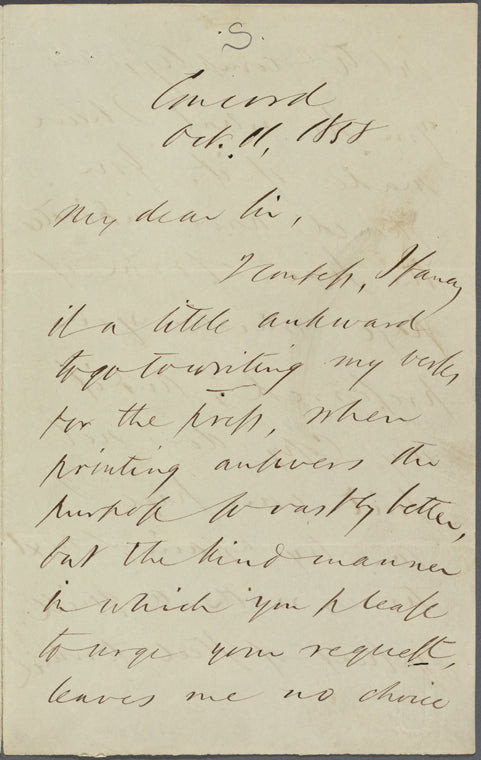 S.
Concord
Oct. 11, 1858
My dear Sir,
I confess, I fancy
it a little awkward
to go to writing my verses
for the press, when
printing answers the
purpose so vastly better,
but the kind manner
in which you please
to urge your request,
leaves me no choice